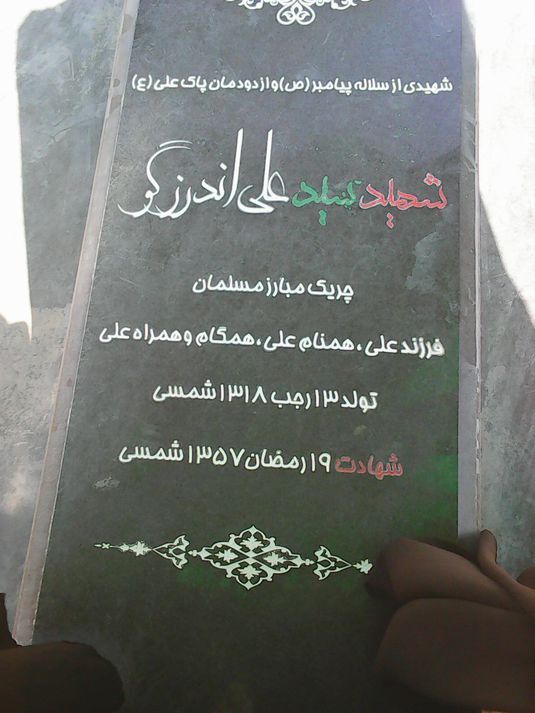 شهیدی از سلاله پیامبر (ص) و از دودمان پاک علی (ع)
شهید سید علی اندرزگو
چریک مبارز مسلمان
فرزند علی ، همنام علی ، همگام و همراه علی
تولد ۱۳ رجب ۱۳۱۸ شمسی
شهادت ۱۹ رمضان ۱۳۵۷ شمسی